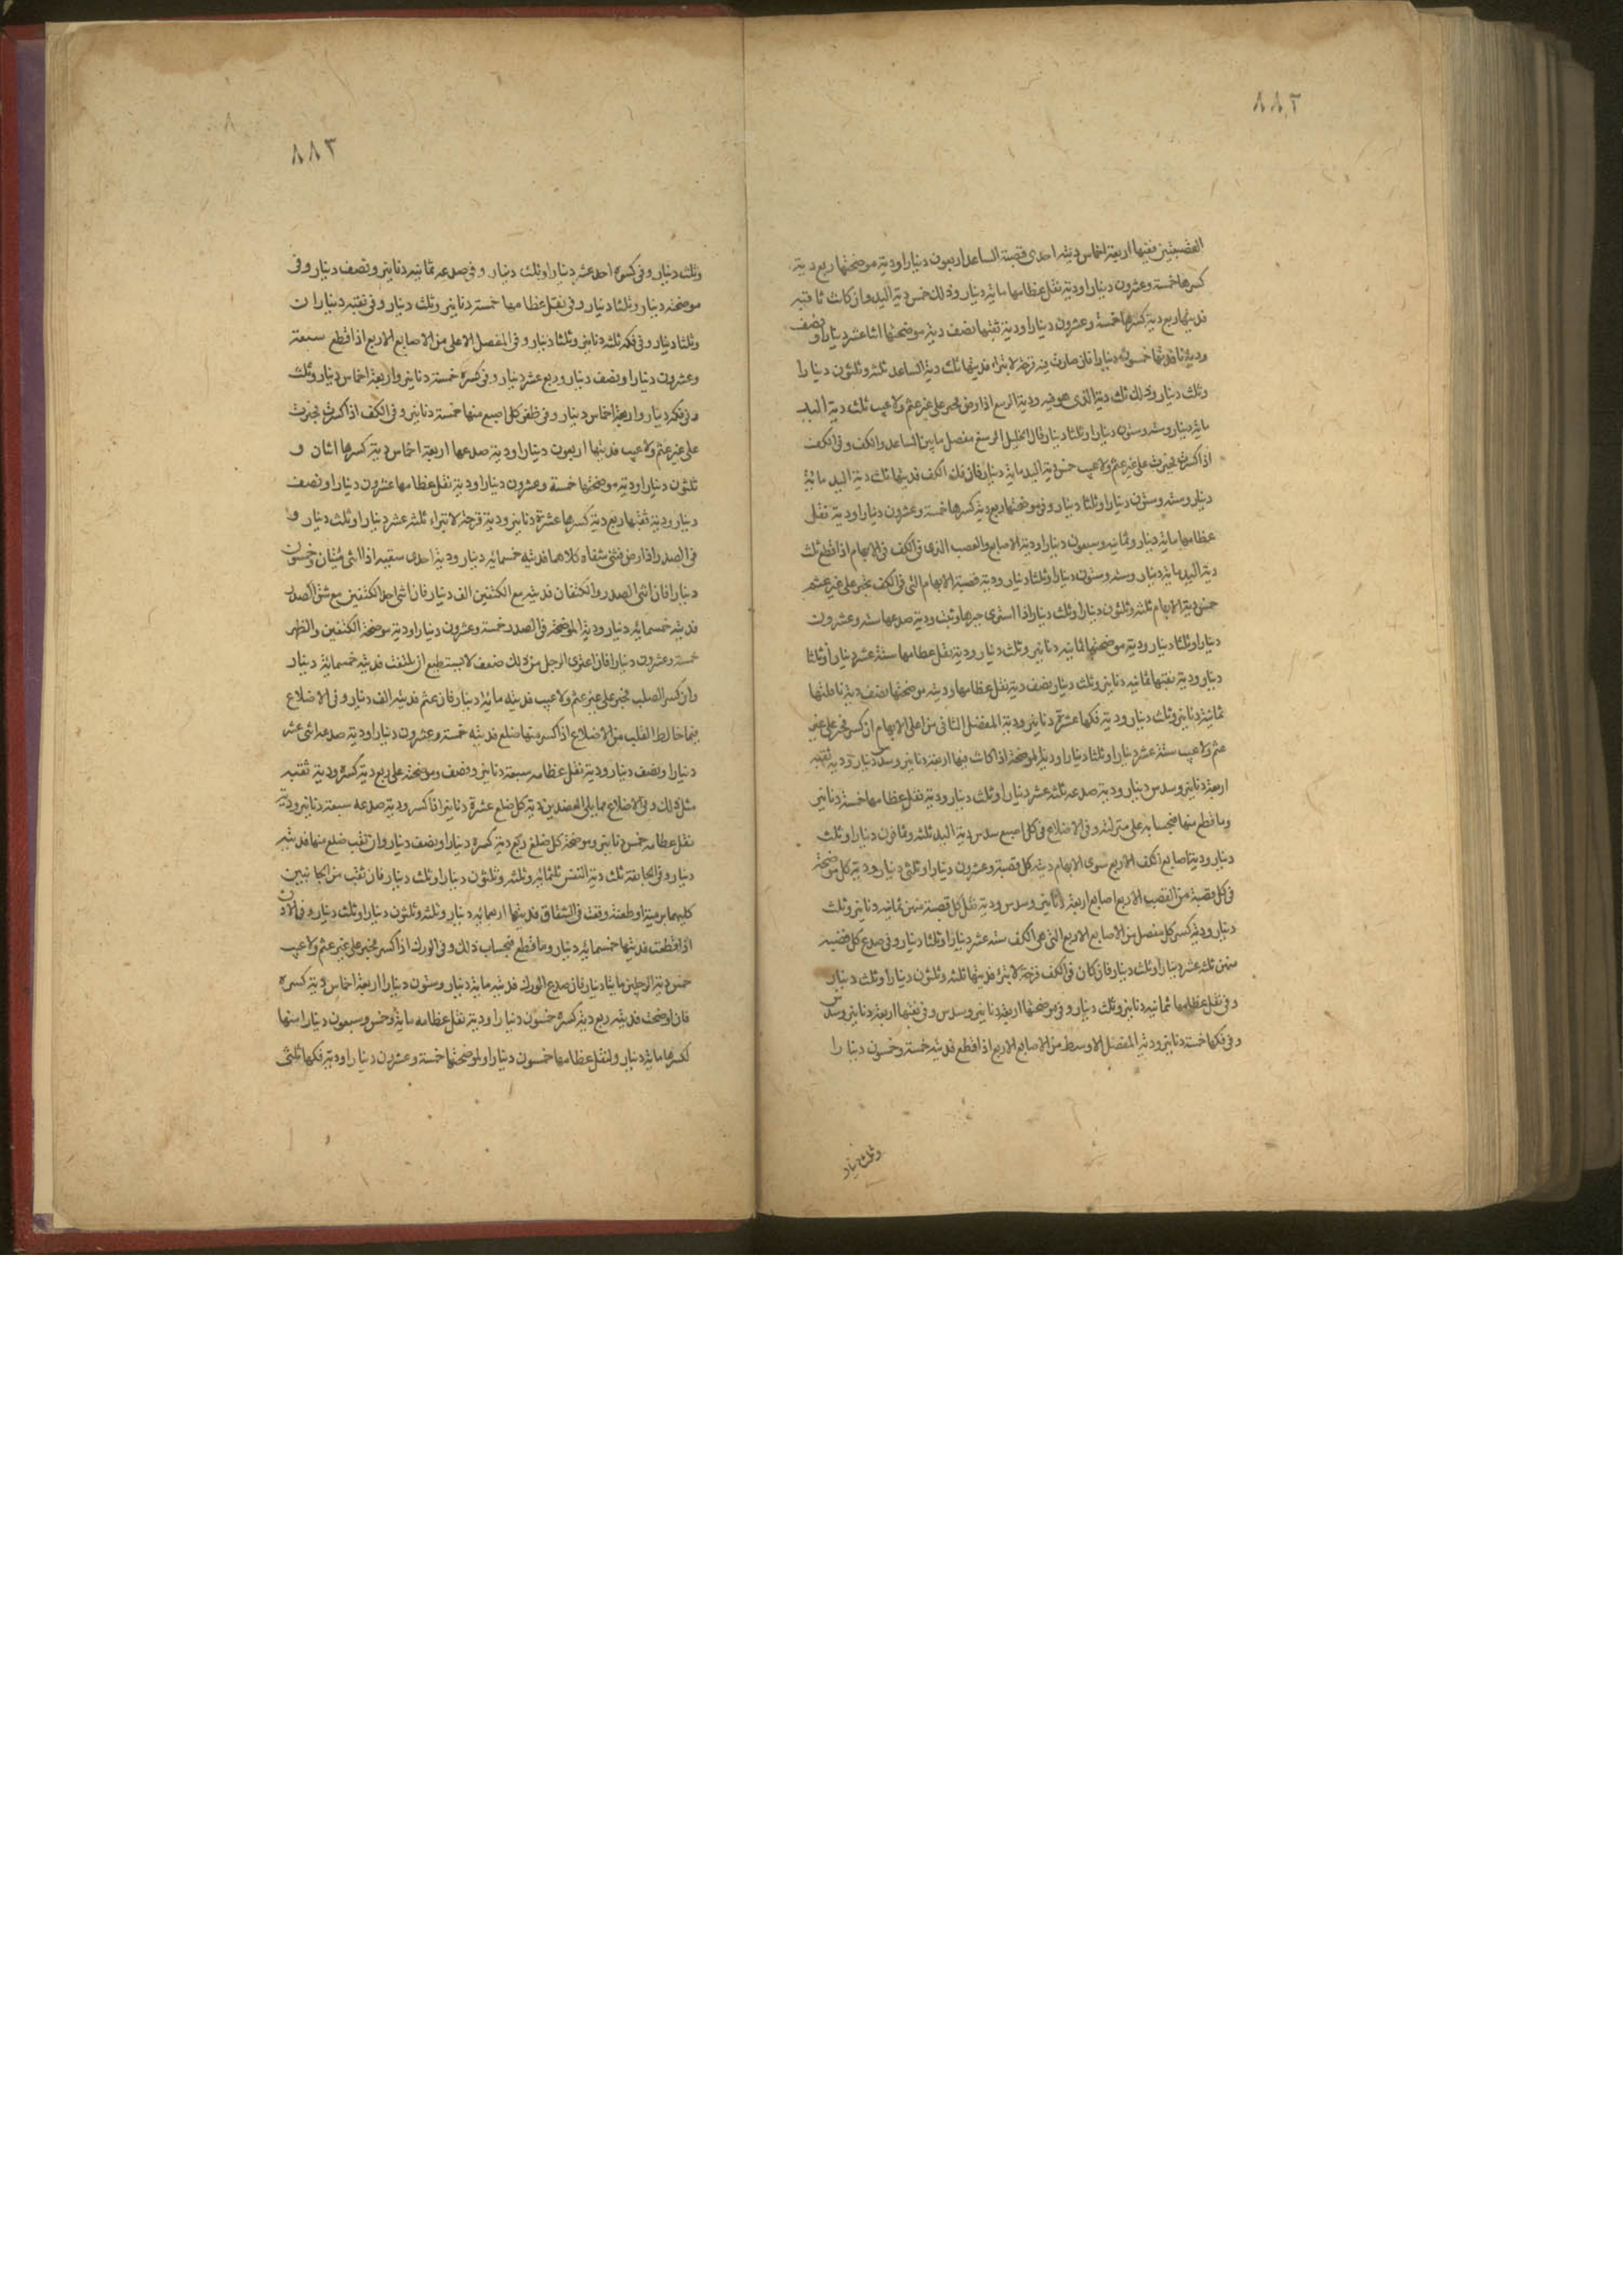 ٨٨٢
القصبتين ففيها اربعة اخماس دية احدى قصبة الساعد اربعون دينارا ودية موضحتها ربع دية
كسرها خمسة وعشرون دينارا ودية نقل عظامها مائة دينار وذلك خمس دية اليد وان كانت ثاقبه
فديتها ربع دية كسرها خمسة وعشرون دينارا ودية نقبها نصف دية موضحتها اثنا عشر دينارا ونصف
ودية نافذتها خمسون دينارا فان صارت فيه قرحة لا تبرا فديتها ثلث دية الساعد ثلثة وثلثون دينارا
وثلث دينار وذلك ثلث دية الذى هو فيه ودية الرسغ اذا رض فجبر على غير عثم ولا عيب ثلث دية اليد
مائة دينار وستة وستون دينارا وثلثا دينار قال الخليل الرسغ مفصل ما بين الساعد والكف وفى الكف
اذا كسرت فجبرت على غير عثم ولا عيب خمس دية اليد مائة دينار فان فك الكف فديتها ثلث دية اليد مائة
دينار وستة وستون دينارا وثلثا دينار وفى موضحتها ربع دية كسرها خمسة وعشرون دينارا ودية نقل
عظامها مائة دينار وثمانية وسبعون دينارا ودية الاصابع والعصب الذى فى الكف فى الابهام اذا قطع ثلث
دية اليد مائة دينار وستة وستون دينارا وثلثا دينار ودية قصبة الابهام التى فى الكف تجبر على غير عثم
خمس دية الابهام ثلثة وثلثون دينارا وثلث دينار اذا استوى جبرها وثبت ودية صدعها ستة وعشرون
دينارا وثلثا دينار ودية موضحتها ثمانية دنانير وثلث دينار ودية نقل عظامها ستة عشر دينارا وثلثا
دينار ودية نقبها ثمانية دنانير وثلث دينار نصف دية نقل عظامها ودية موضحتها نصف دية ناقلتها
ثمانية دنانير وثلث دينار ودية فكها عشرة دنانير ودية المفصل الثانى من اعلى الابهام ان كسر فجبر على غير
عثم ولا عيب ستة عشر دينارا وثلثا دينار ودية الموضحة اذا كانت فيها اربعة دنانير وسدس دينار ودية نقبه
اربعة دنانير وسدس دينار ودية صدعه ثلثة عشر دينارا وثلث دينار ودية نقل عظامها خمسة دنانير
وما قطع منها فبحسابه على منزلته وفى الاضلاع فى كل اصبع سدس دية اليد ثلثة وثمانون دينارا وثلث
دينار ودية اصابع الكف الاربع سوى الابهام دية كل قصبة وعشرون دينارا وثلثى دينار ودية كل موضحة
فى كل قصبة من القصب الاربع اصابع اربعة دنانير وسدس ودية نقل كل قصبة منهن ثمانية دنانير وثلث
دينار ودية كسر كل مفصل من الاصابع الاربع التى هى الكف ستة عشر دينارا وثلثا دينار وفى صدع كل قصبه
منهن ثلثة عشر دينارا وثلث دينار فان كان فى الكف قرحة لا تبرا فديتها ثلثة وثلثون دينارا وثلث دينار
وفى نقل عظامها ثمانية دنانير وثلث دينار وفى موضحتها اربعة دنانير وسدس وفى نقبها اربعة دنانير وسدس
وفى فكها خمسة دنانير ودية المفصل الاوسط من الاصابع الاربع اذا قطع فديته خمسة وخمسون دينارا
وثلث دينار
٨٨٣
وثلث دينار وفى كسره احد عشر دينارا وثلث دينار وفى صدعه ثمانية دنانير ونصف دينار وفى
موضحته دينار وثلثا دينار وفى نقل عظامها خمسة دنانير وثلث دينار وفى نقبه ديناران
وثلثا دينار وفى فكه ثلثة دنانير وثلثا دينار وفى المفصل الاعلى من الاصابع الاربع اذا قطع سبعة
وعشرون دينارا ونصف دينار وربع عشر دينار وفى كسره خمسة دنانير واربعة اخماس دينار وثلث
وفى فكه دينار واربعة اخماس دينار وفى ظفر كل اصبع منها خمسة دنانير وفى الكف اذا كسرت فجبرت
على غير عثم ولا عيب فديتها اربعون دينارا ودية صدعها اربعة اخماس دية كسرها اثنان و
ثلثون دينارا ودية موضحتها خمسة وعشرون دينارا ودية نقل عظامها عشرون دينارا ونصف
دينار ودية نقبها ربع دية كسرها عشرة دنانير ودية قرحة لا تبراء ثلثة عشر دينارا وثلث دينار و
فى الصدر اذا رض فثنى شقاه كلاهما فديته خمسمائة دينار ودية احدى شقيه اذا انثى مئتان وخمسون
دينارا فان انثى الصدر والكتفان فديته مع الكتفين الف دينار فان انثى احد الكتفين مع شق الصدر
فديته خمسمائة دينار ودية الموضحة فى الصدر خمسة وعشرون دينارا ودية موضحة الكتفين والظهر
خمسة وعشرون دينارا فان اعترى الرجل من ذلك ضعف لا يستطيع ان يلتفت فديته خمسمائة دينار
وان كسر الصلب فجبر على غير عثم ولا عيب فديته مائة دينار فان عثم فديته الف دينار وفى الاضلاع
فيما خالط القلب من الاضلاع اذا كسر منها ضلع فديته خمسة وعشرون دينارا ودية صدعه اثنى عشر
دينارا ونصف دينار ودية نقل عظامه سبعة دنانير ونصف وموضحته على ربع دية كسره ودية نقبه
مثل ذلك وفى الاضلاع مما يلى العضدين دية كل ضلع عشرة دنانير اذا كسر ودية صدعه سبعة دنانير ودية
نقل عظامه خمس دنانير وموضحة كل ضلع ربع دية كسره دينارا ونصف دينار وان نقب ضلع منها فديته
دينار وفى الجائفة ثلث دية النفس ثلثمائة وثلثة وثلثون دينارا وثلث دينار فان نقب من الجانبين
كليهما برمية او طعنة وقعت فى الشقاق فديتها اربعمائة دينار وثلثة وثلثون دينارا وثلث دينار وفى الاذن
اذا قطعت فديتها خمسمائة دينار وما قطع فبحساب ذلك وفى الورك اذا كسر فجبر على غير عثم ولا عيب
خمس دية الرجلين مائتا دينار فان صدع الورك فديته مائة دينار وستون دينارا اربعة اخماس دية كسره
فان اوضحت فديته ربع دية كسره خمسون دينارا ودية نقل عظامه مائة وخمس وسبعون دينارا منها
لكسرها مائة دينار ولنقل عظامها خمسون دينارا ولموضحتها خمسة وعشرون دينارا ودية فكها ثلثى